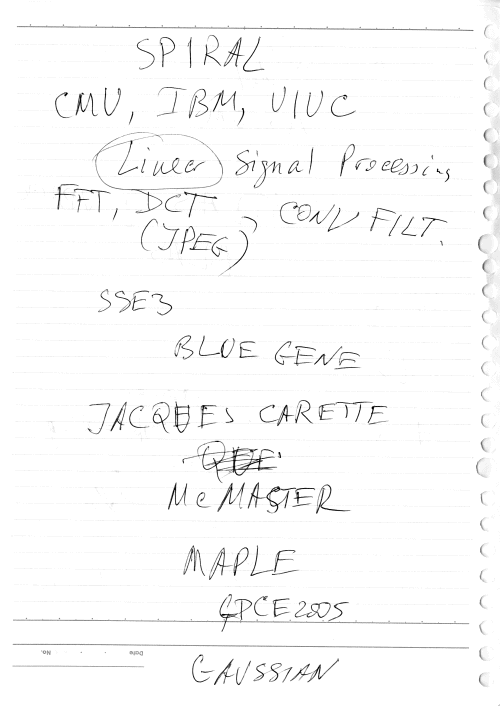 SPIRAL
CMU, IBM, UIUC
Linear Signal Processing
FFT, DCT, CONV FILT.
(JPEG)
SSE3
BLUE GENE
JACQUES CARETTE
McMASTER
MAPLE
GPCE 2005
No. Date
GAUSSIAN